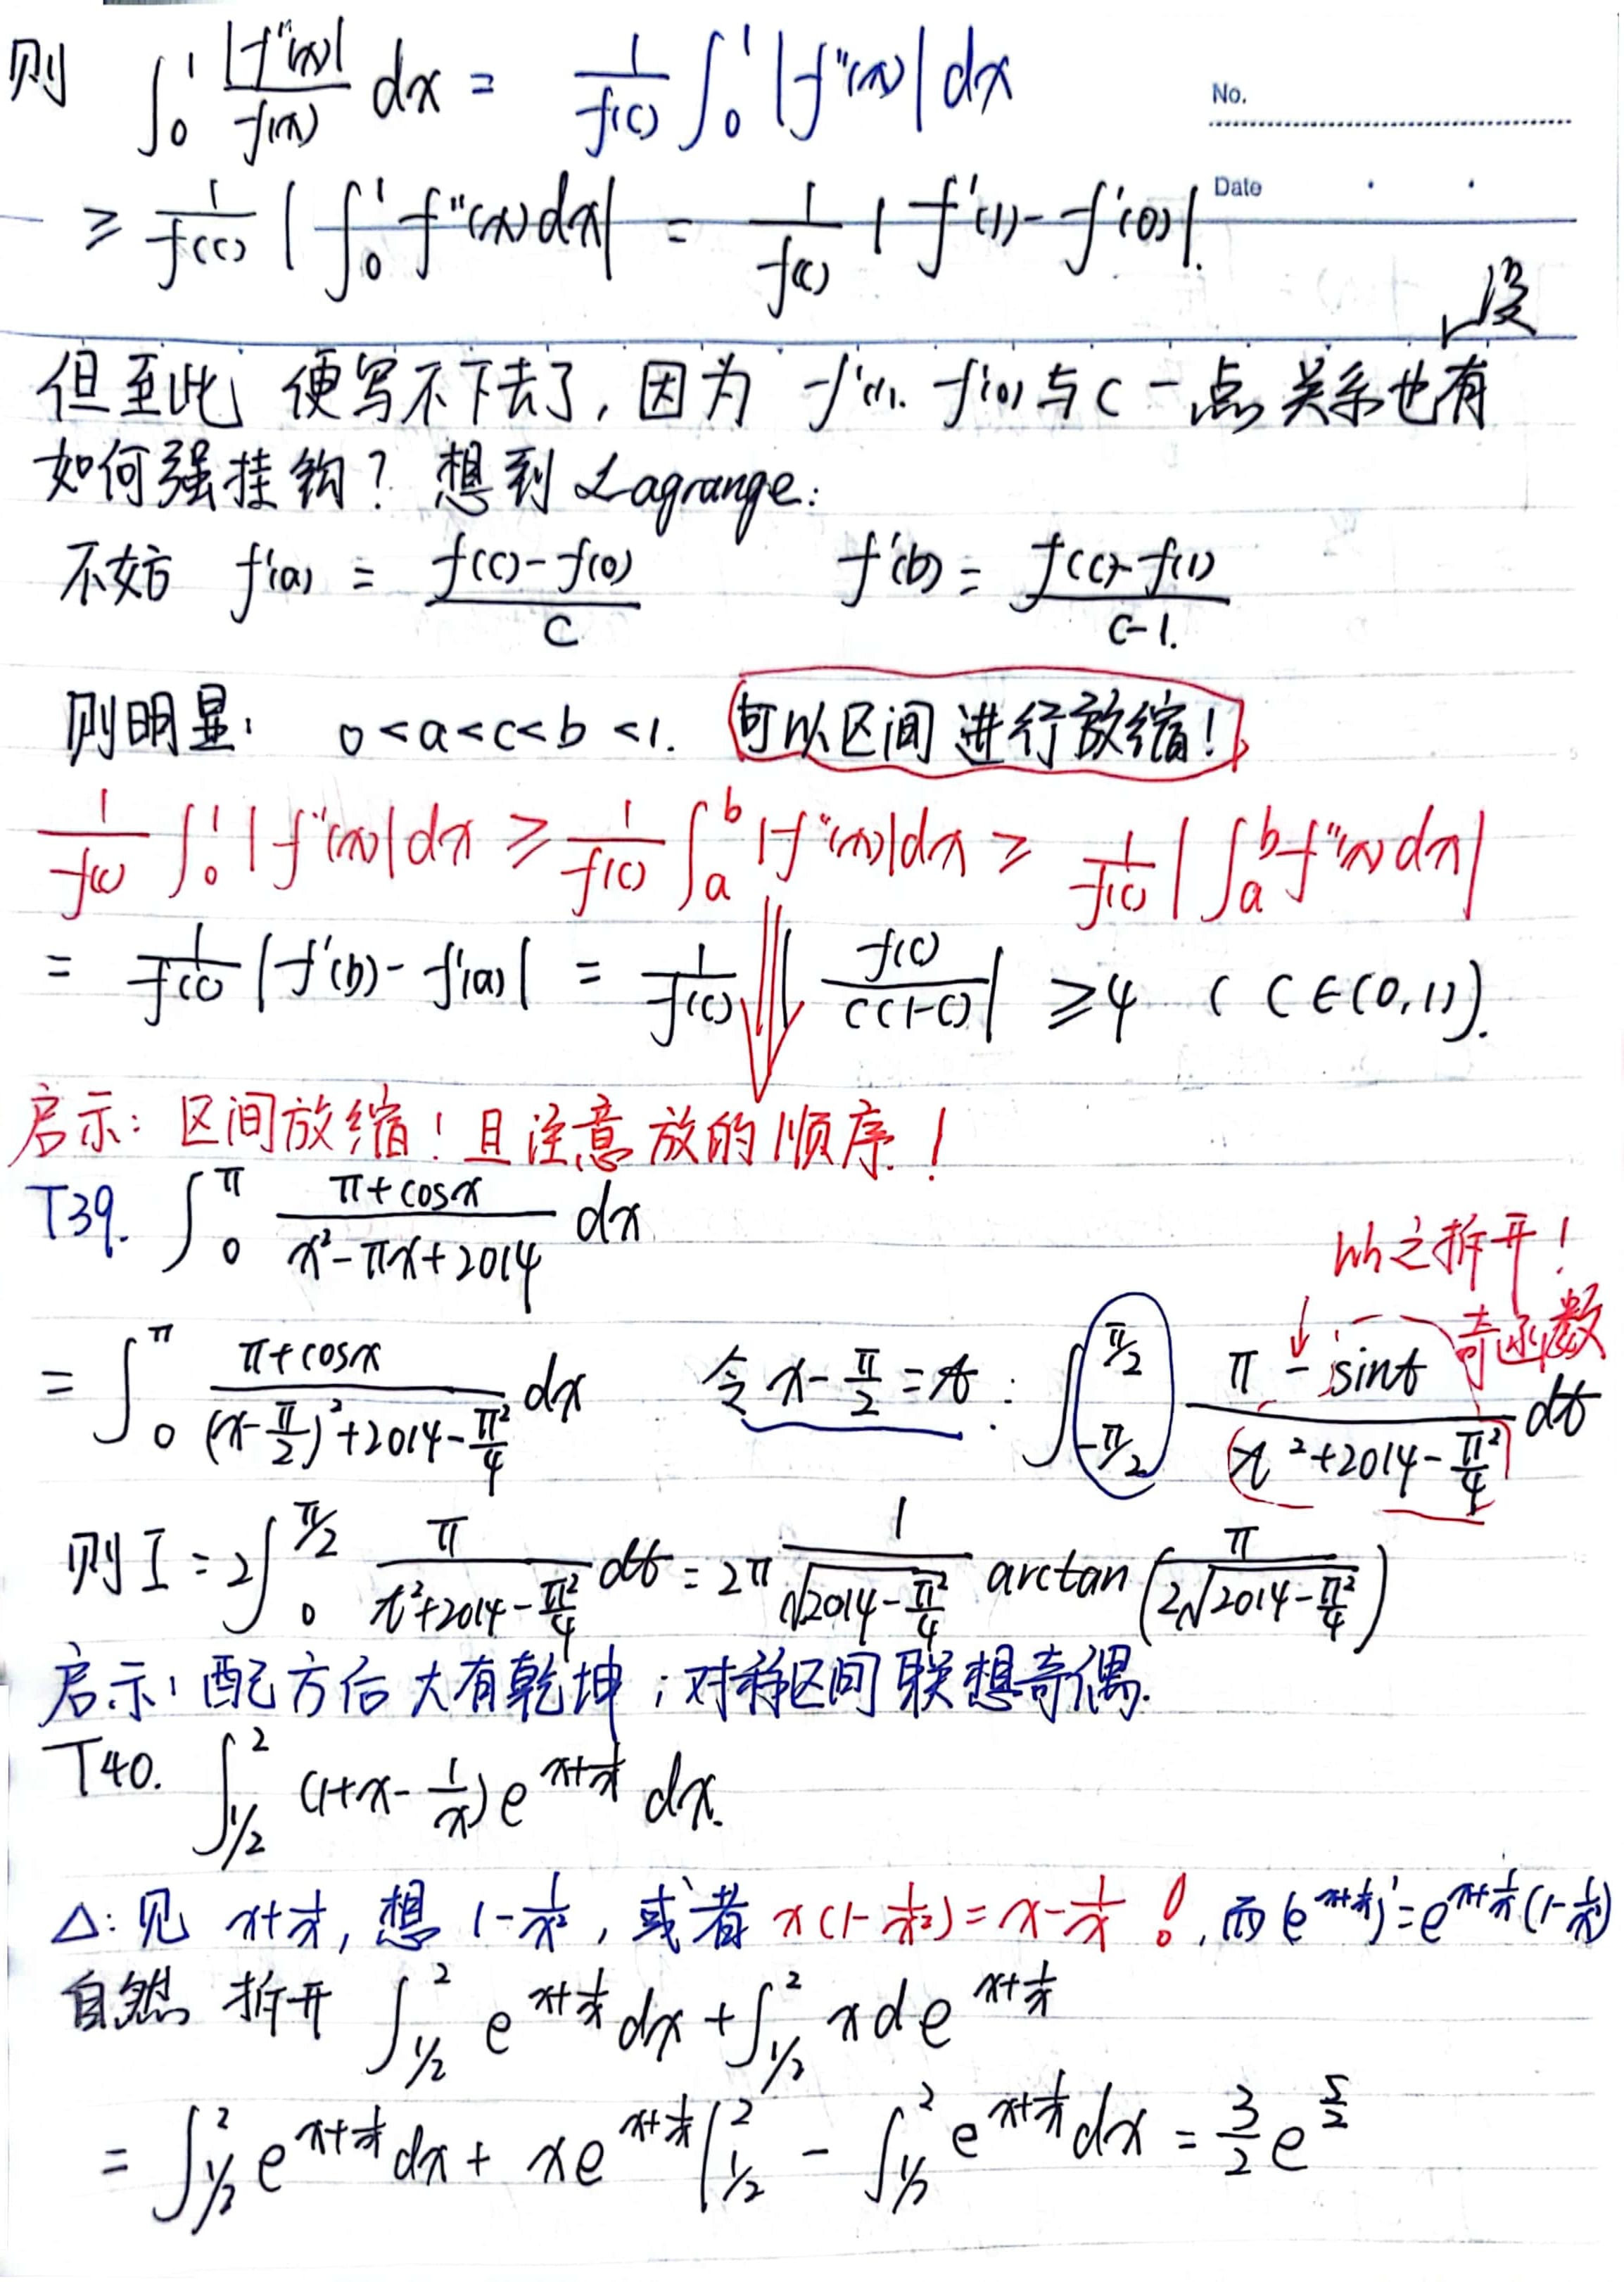 No.
Date
则 ∫₀¹ |f''(x)|/f(x) dx = 1/f(c) ∫₀¹ |f''(x)| dx
≥ 1/f(c) | ∫₀¹ f''(x)dx | = 1/f(c) | f'(1) - f'(0) |.
没
但至此 便写不下去了, 因为 f'(1). f'(0) 与 c 一点关系也有
如何强挂钩? 想到 Lagrange:
不妨 f'(a) = (f(c)-f(0))/c f'(b) = (f(c)-f(1))/(c-1).
则明显: 0<a<c<b<1. 可以区间进行放缩!
1/f(c) ∫₀¹ |f''(x)|dx ≥ 1/f(c) ∫ₐᵇ |f''(x)|dx ≥ 1/f(c) | ∫ₐᵇ f''(x)dx |
= 1/f(c) |f'(b) - f'(a)| = 1/f(c) | f(c)/(c(1-c)) | ≥ 4 ( c∈(0,1)).
启示: 区间放缩! 且注意放的顺序!
T39. ∫₀^π (π+cosx)/(x²-πx+2014) dx
之拆开!
奇函数
= ∫₀^π (π+cosx)/((x-π/2)²+2014-π²/4) dx 令 x-π/2=t : ∫_{-π/2}^{π/2} (π-sint)/(t²+2014-π²/4) dt
则 I = 2∫₀^{π/2} π/(t²+2014-π²/4) dt = 2π 1/√(2014-π²/4) arctan(π/(2√(2014-π²/4)))
启示: 配方后大有乾坤; 对称区间联想奇偶.
T40. ∫_{1/2}^2 (1+x-1/x)e^{x+1/x} dx.
△: 见 x+1/x, 想 1-1/x², 或者 x(1-1/x²)=x-1/x !, 而 (e^{x+1/x})'=e^{x+1/x}(1-1/x²)
自然 拆开 ∫_{1/2}^2 e^{x+1/x}dx + ∫_{1/2}^2 x d e^{x+1/x}
= ∫_{1/2}^2 e^{x+1/x}dx + xe^{x+1/x}|_{1/2}^2 - ∫_{1/2}^2 e^{x+1/x}dx = 3/2 e^{5/2}